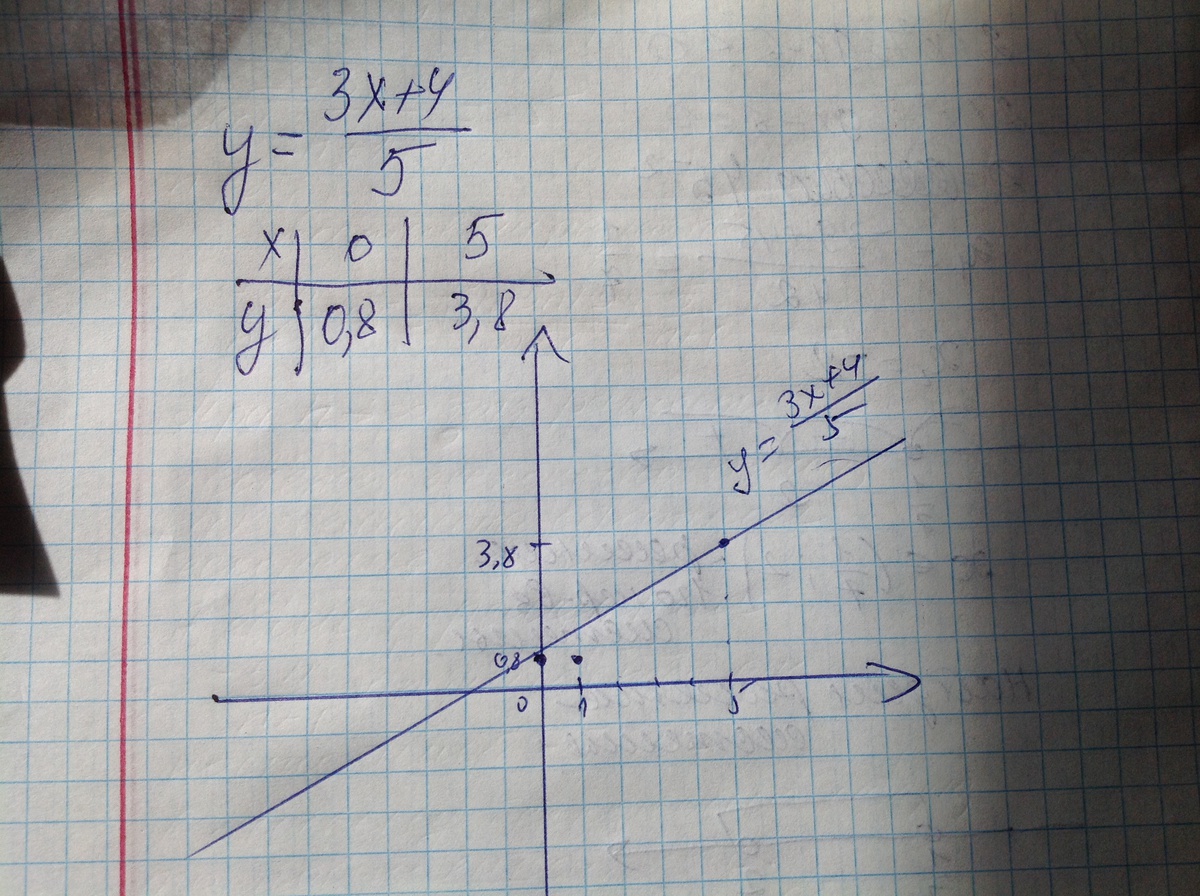 y = (3x+4)/5
x | 0 | 5
y | 0,8 | 3,8
y = (3x+4)/5
3,8
0,8
0 1 5